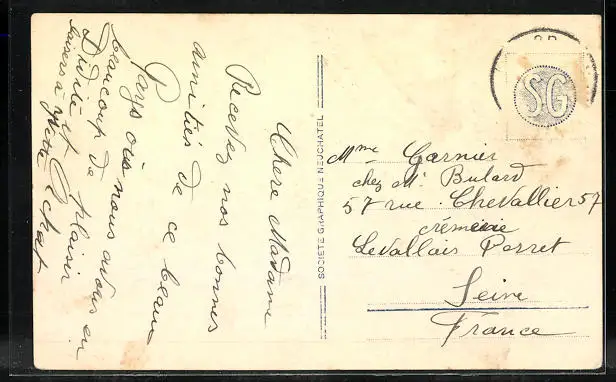 Chere Madame
Recevez nos bonnes
amitiés de ce beau
Pays où nous avons eu
beaucoup de plaisir
Didite et
baisers a
SOCIÉTÉ GRAPHIQUE NEUCHATEL
SG
Mme Garnier
chez Mr Bulard
57 rue Chevallier 57
crémerie
Levallois Perret
Seine
France